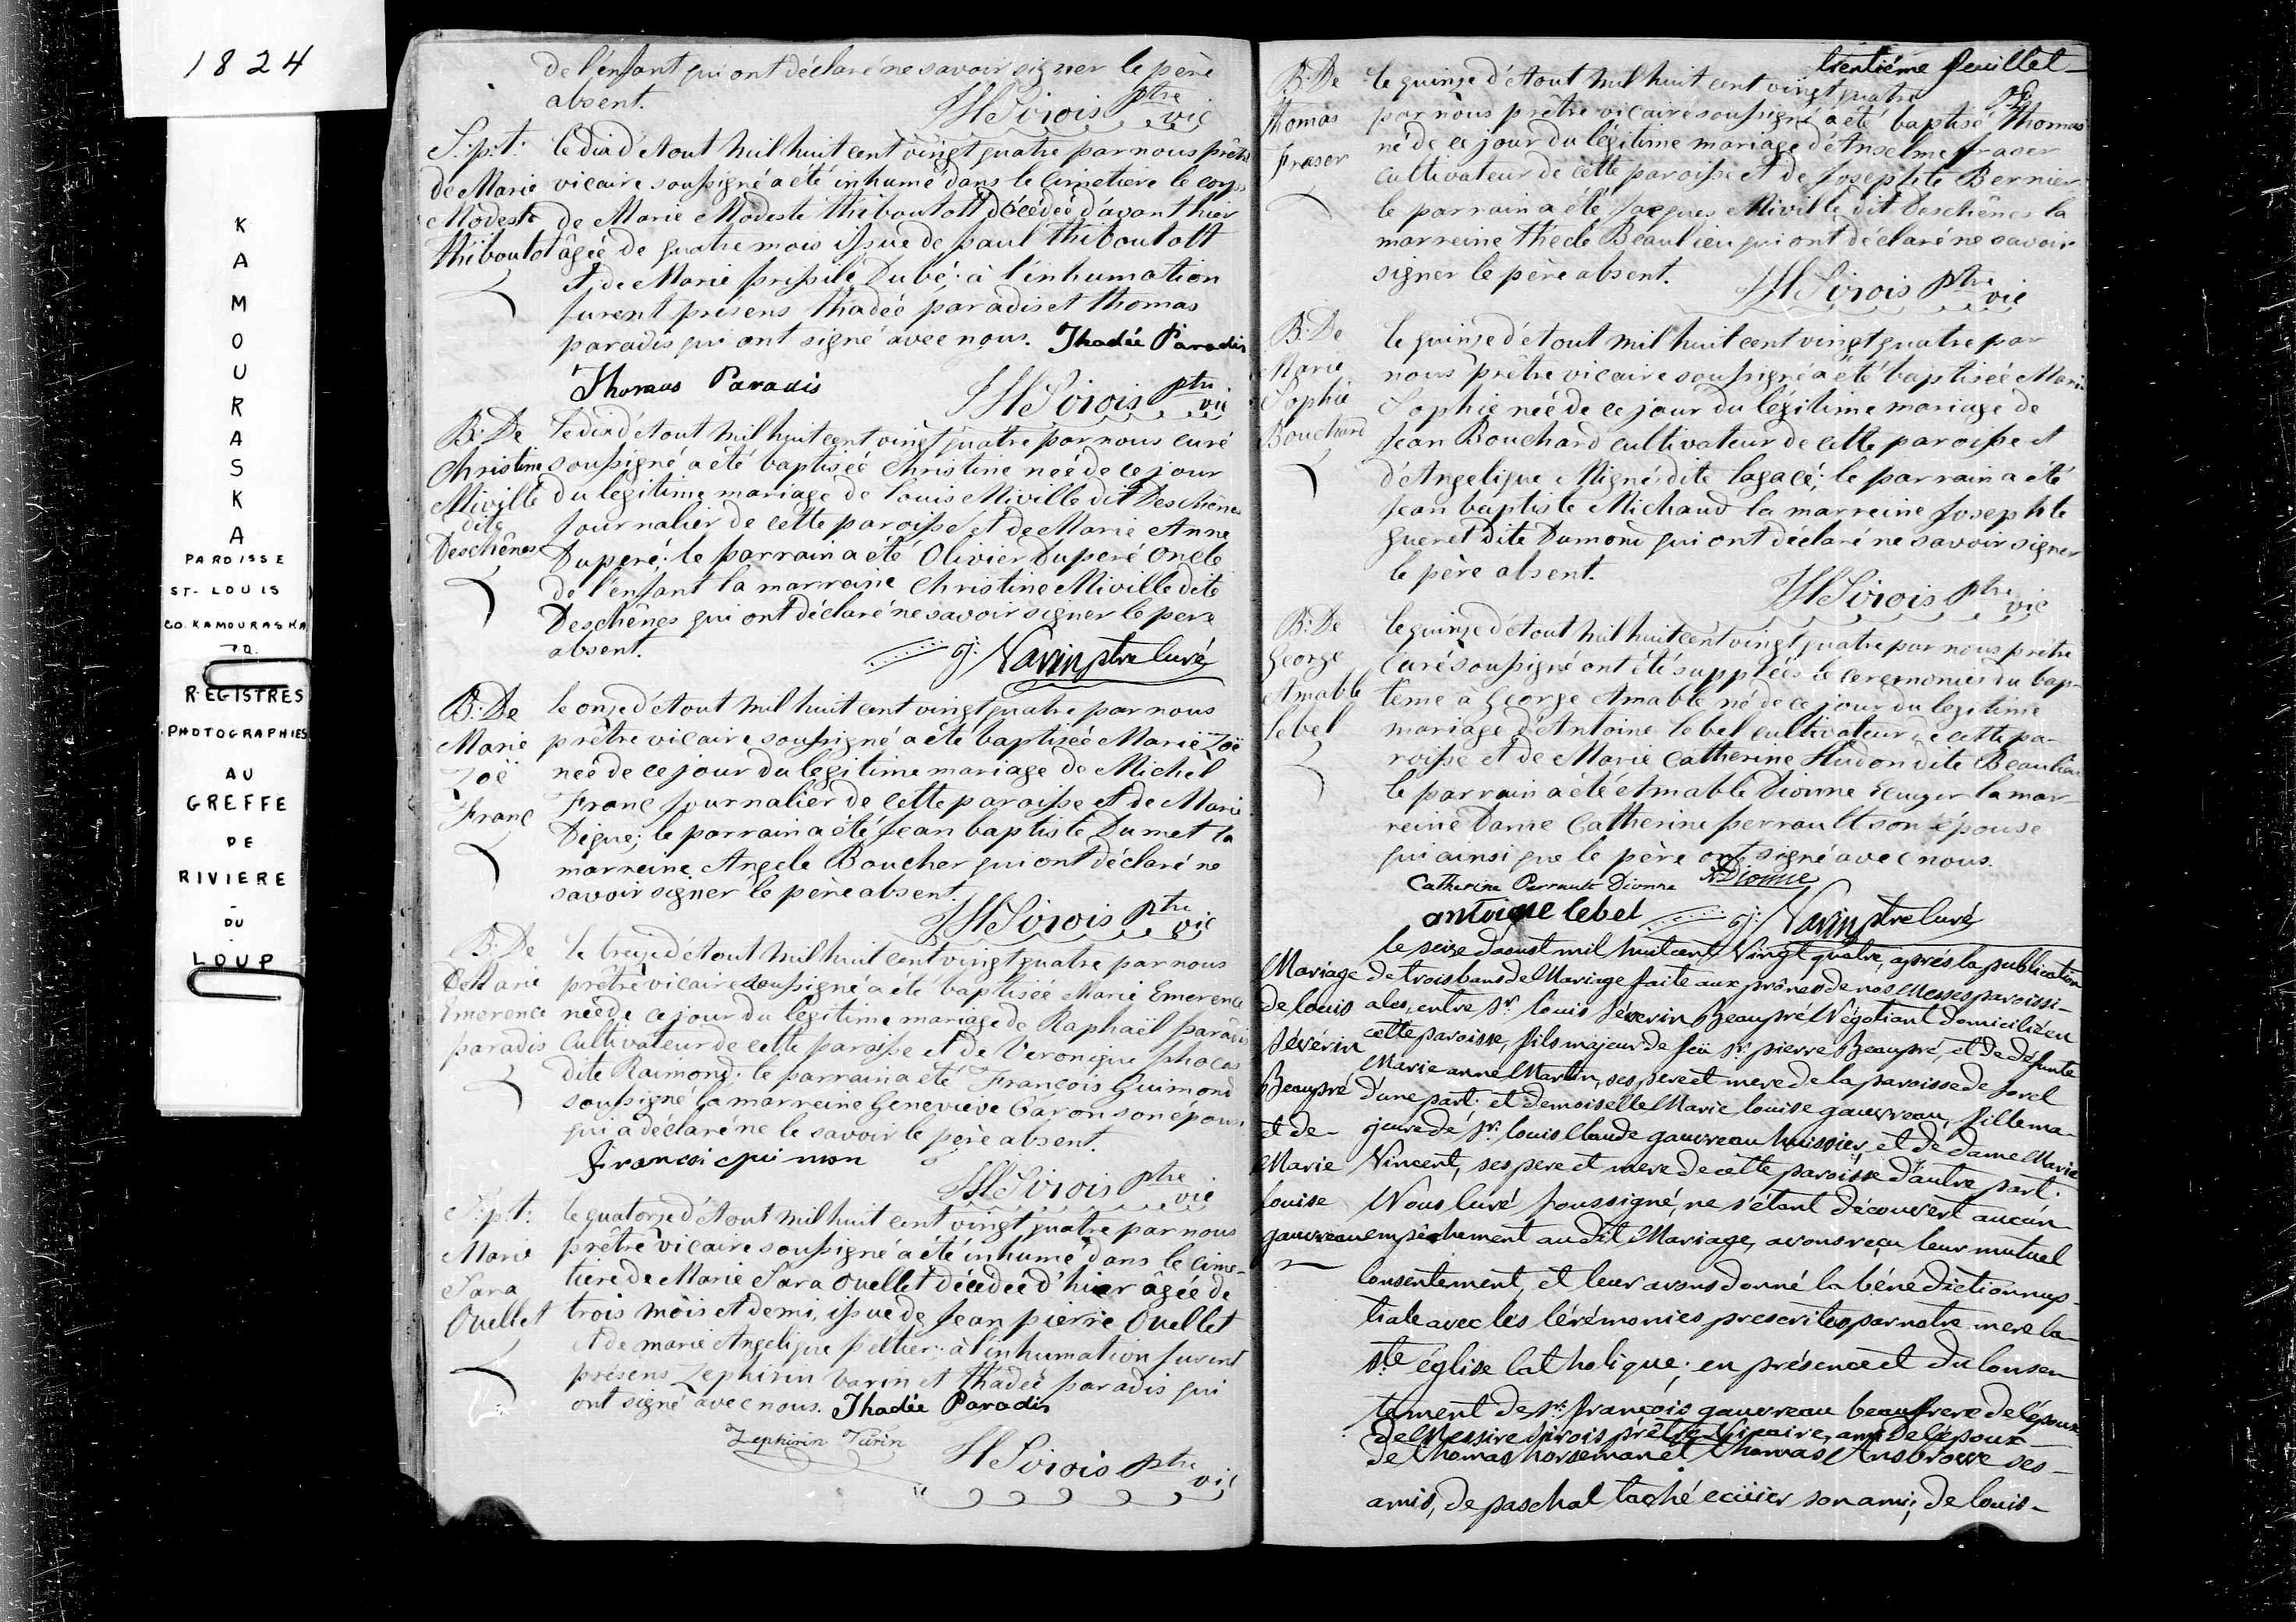 1824
KAMOURASKA
PAROISSE
ST-LOUIS
CO. KAMOURASKA
P.Q.
REGISTRES
PHOTOGRAPHIES
AU
GREFFE
DE
RIVIERE
-
DU
-
LOUP
de l'enfant qui ont déclaré ne savoir signer le père
absent.
JH Sirois ptre vic
S:p:t: le dix d'Aout mil huit cent vingt quatre par nous prêtre
de Marie vicaire soussigné a été inhumé dans le Cimetiere le corps
Modeste de Marie Modeste Thiboutott décédée d'avant hier
Thiboutot âgée de quatre mois issue de paul Thiboutott
et de Marie prissile Dubé; à l'inhumation
furent présens thadée paradis et thomas
paradis qui ont signé avec nous. Thadée Paradis
Thomas Paradis JH Sirois ptre vic
B: De le dix d'Aout mil huit cent vingt quatre par nous curé
Christine soussigné a été baptisée Christine née de ce jour
Miville du légitime mariage de Louis Miville dit Deschênes
dite Journalier de cette paroisse et de Marie Anne
Deschênes Duperé; le parrain a été Olivier Duperé oncle
de l'enfant la marraine Christine Miville dite
Deschênes qui ont déclaré ne savoir signer le pere
absent.
J: Varin ptre Curé
B: De le onze d'Aout mil huit cent vingt quatre par nous
Marie prêtre vicaire soussigné a été baptisée Marie Zoë
Zoë née de ce jour du légitime mariage de Michel
Franc Franc Journalier de cette paroisse et de Marie
Digue; le parrain a été Jean baptiste Dumet la
marreine Angele Boucher qui ont déclaré ne
savoir signer le père absent.
JH Sirois ptre vic
B: De le treize d'Aout mil huit cent vingt quatre par nous
Marie prêtre vicaire soussigné a été baptisée Marie Emerence
Emerence née de ce jour du légitime mariage de Raphaël paradis
paradis Cultivateur de cette paroisse et de Veronique phocas
dite Raimond; le parrain a été François Guimond
soussigné la marreine Genevieve Caron son épouse
qui a déclaré ne le savoir le père absent.
francoi qui mon
JH Sirois ptre vic
S:p:t: le quatorze d'Aout mil huit cent vingt quatre par nous
Marie prêtre vicaire soussigné a été inhumé dans le cime-
Sara tiere de Marie Sara Ouellet décedée d'hier âgée de
Ouellet trois mois et demi, issue de Jean pierre Ouellet
et de marie Angelique peltier: à l'inhumation furent
présens Zephirin Varin et thadée paradis qui
ont signé avec nous. Thadée Paradis
Zephirin Varin JH Sirois ptre vic
trentiéme feuillet
B: De le quinze d'Aout mil huit cent vingt quatre
Thomas par nous prêtre vicaire soussigné a été baptisé Thomas
fraser né de ce jour du légitime mariage d'Anselme fraser
cultivateur de cette paroisse et de Josephte Bernier
le parrain a été Jacques Miville dit Deschênes la
marreine thecle Beaulieu qui ont déclaré ne savoir
signer le père absent.
JH Sirois ptre vic
B: De le quinze d'Aout mil huit cent vingt quatre par
Marie nous prêtre vicaire soussigné a été baptisée Marie
Sophie Sophie née de ce jour du légitime mariage de
Bouchard Jean Bouchard cultivateur de cette paroisse et
d'Angelique Migné dite lagacé; le parrain a été
Jean baptiste Michaud la marreine Josephte
Gueret dite Dumond qui ont déclaré ne savoir signer
le père absent.
JH Sirois ptre vic
B: De le quinze d'Aout mil huit cent vingt quatre par nous prêtre
George Curé soussigné ont été supplées le ceremonies du bap-
Amable teme à George Amable né de ce jour du legitime
lebel mariage d'Antoine lebel cultivateur de cette pa-
roisse et de Marie Catherine Hudon dite Beaulieu
le parrain a été Amable Dionne Ecuyer la mar-
reine Dame Catherine perrault son épouse
qui ainsi que le père ont signé avec nous.
Catherine Perrault Dionne ADionne
antoine lebel J: Varin ptre Curé
le seize d'aoust mil huit cent Vingt quatre, après la publication
Mariage de trois bans de Mariage faite aux prônes de nos Messes paroissi-
de louis ales, entre Sr. louis Séverin Beaupré Négotiant domicilié en
Sévérin cette paroisse, fils majeur de feü Sr. pierre Beaupré, et de défunte
Marie anne Martin, ses pere et mere de la paroisse de Sorel
Beaupré d'une part. et demoiselle Marie louise gauvreau, fille ma-
et de - jeure de Sr. louis Claude gauvreau huissier, et de dame Marie
Marie Vincent, ses pere et mere de cette paroisse d'autre part.
louise Nous Curé soussigné, ne s'étant découvert aucun
gauvreau empêchement audit Mariage, avons reçu leur mutuel
Consentement, et leur avons donné la bénédiction nup-
tiale avec les Cérémonies prescrites par notre mere la
ste église Catholique; en présence et du Consen
tement de Sr. françois gauvreau beaufrere de l'époux
de Messire Sirois prêtre Vicaire, ami de l'époux
de Thomas horseman et Thomas Ansbrowe ses -
amis, de paschal taché ecüier son ami; de louis -